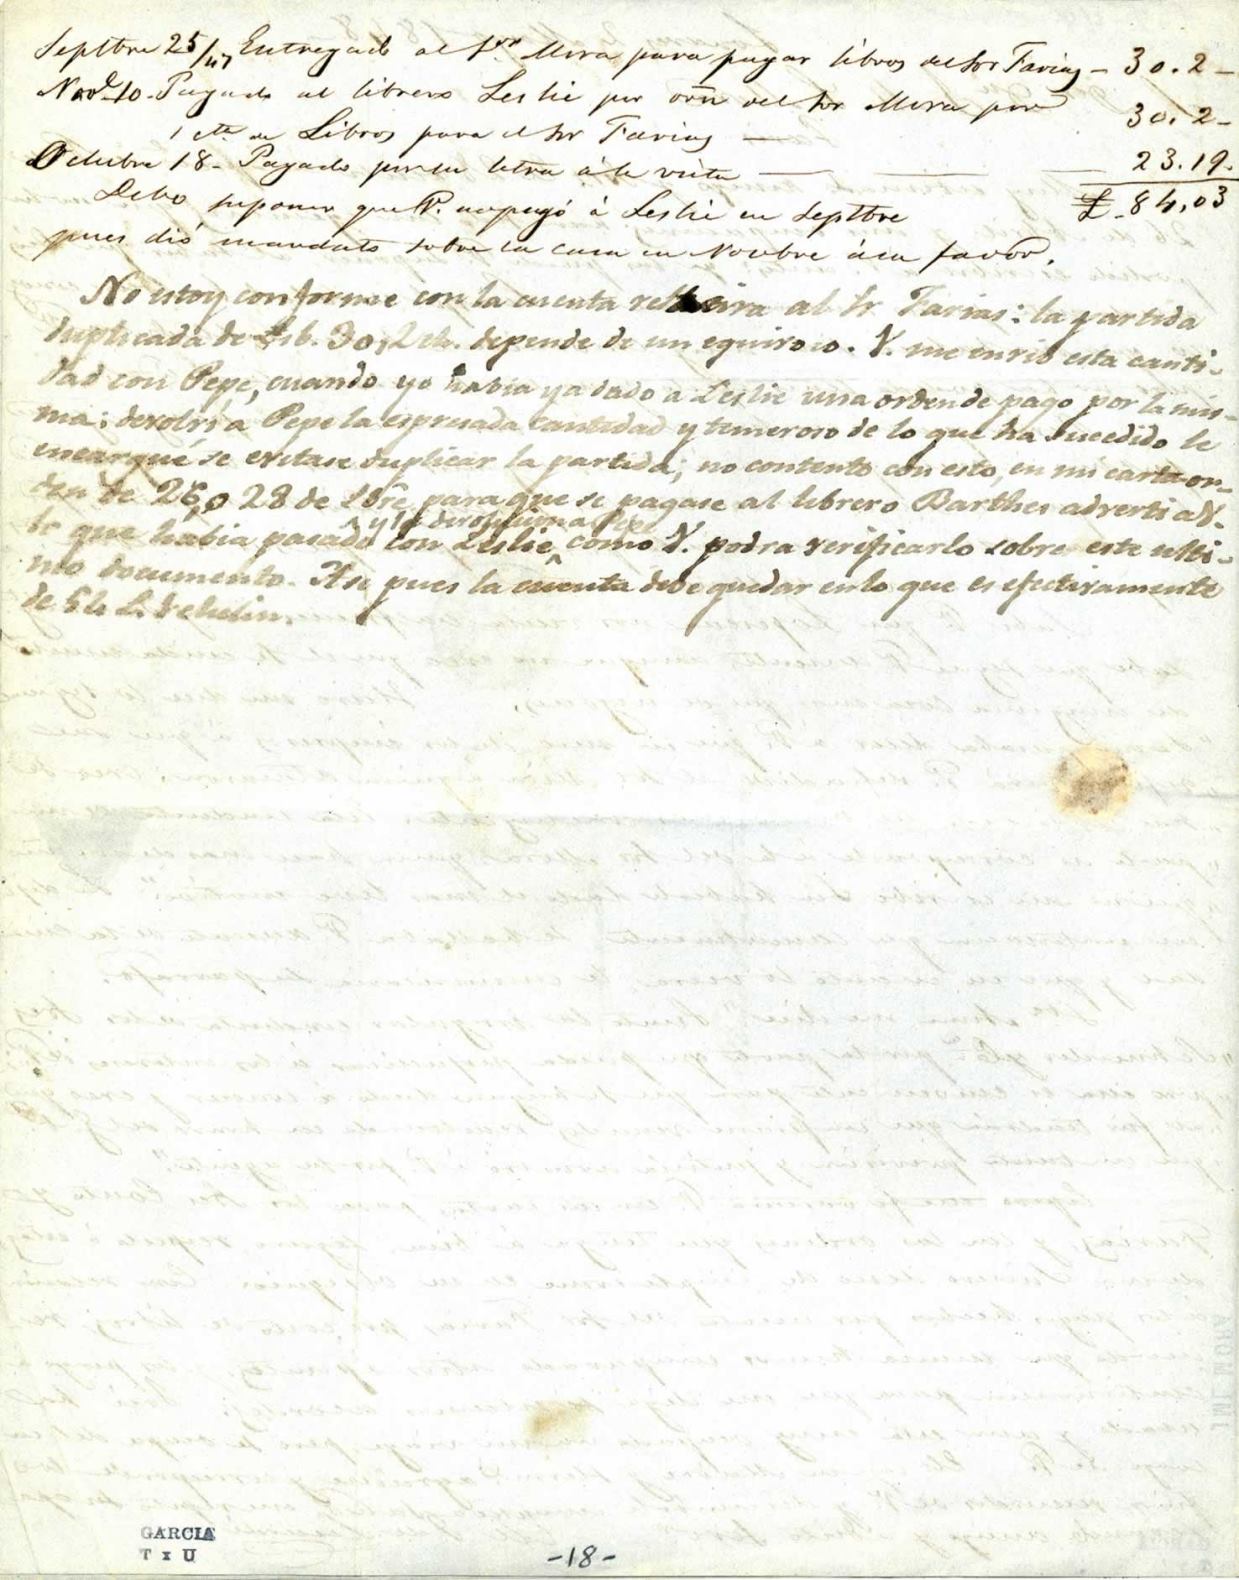 Septtbre 25/47 Entregado al Sor Mora para pagar libros del Sor Farias – 30.2 –
Novbe 10 – Pagado al librero Leslie por orn del Sor Mora por
1 cta de Libros para el Sor Farias — 30.2 –
Octubre 18 – Pagado por su letra á la vista — — — 23.19.
Debo suponer que V. no pagó á Leslie en Septtbre £ 84,03
pues dió mandato sobre la casa en Novbre á su favor.
No estoy conforme con la cuenta relativa al Sr Farias: la partida
duplicada de Lib. 30, 2 ch. depende de un equivoco. V. me envió esta canti-
dad con Pepe, cuando yo habia ya dado a Leslie una orden de pago por la mis-
ma; devolví a Pepe la espresada cantidad y temeroso de lo que ha sucedido le
encargué se evitase duplicar la partida; no contento con esto, en mi carta or-
den de 26, o 28 de para que se pagase al librero Barthes adverti a V.
y la devolucion a Pepe
lo que habia pasado con Leslie, como V. podra verificarlo sobre este ulti-
mo documento. Asi pues la cuenta debe quedar en lo que es efectivamente
de 54 L.
GARCIA
T x U
-18-